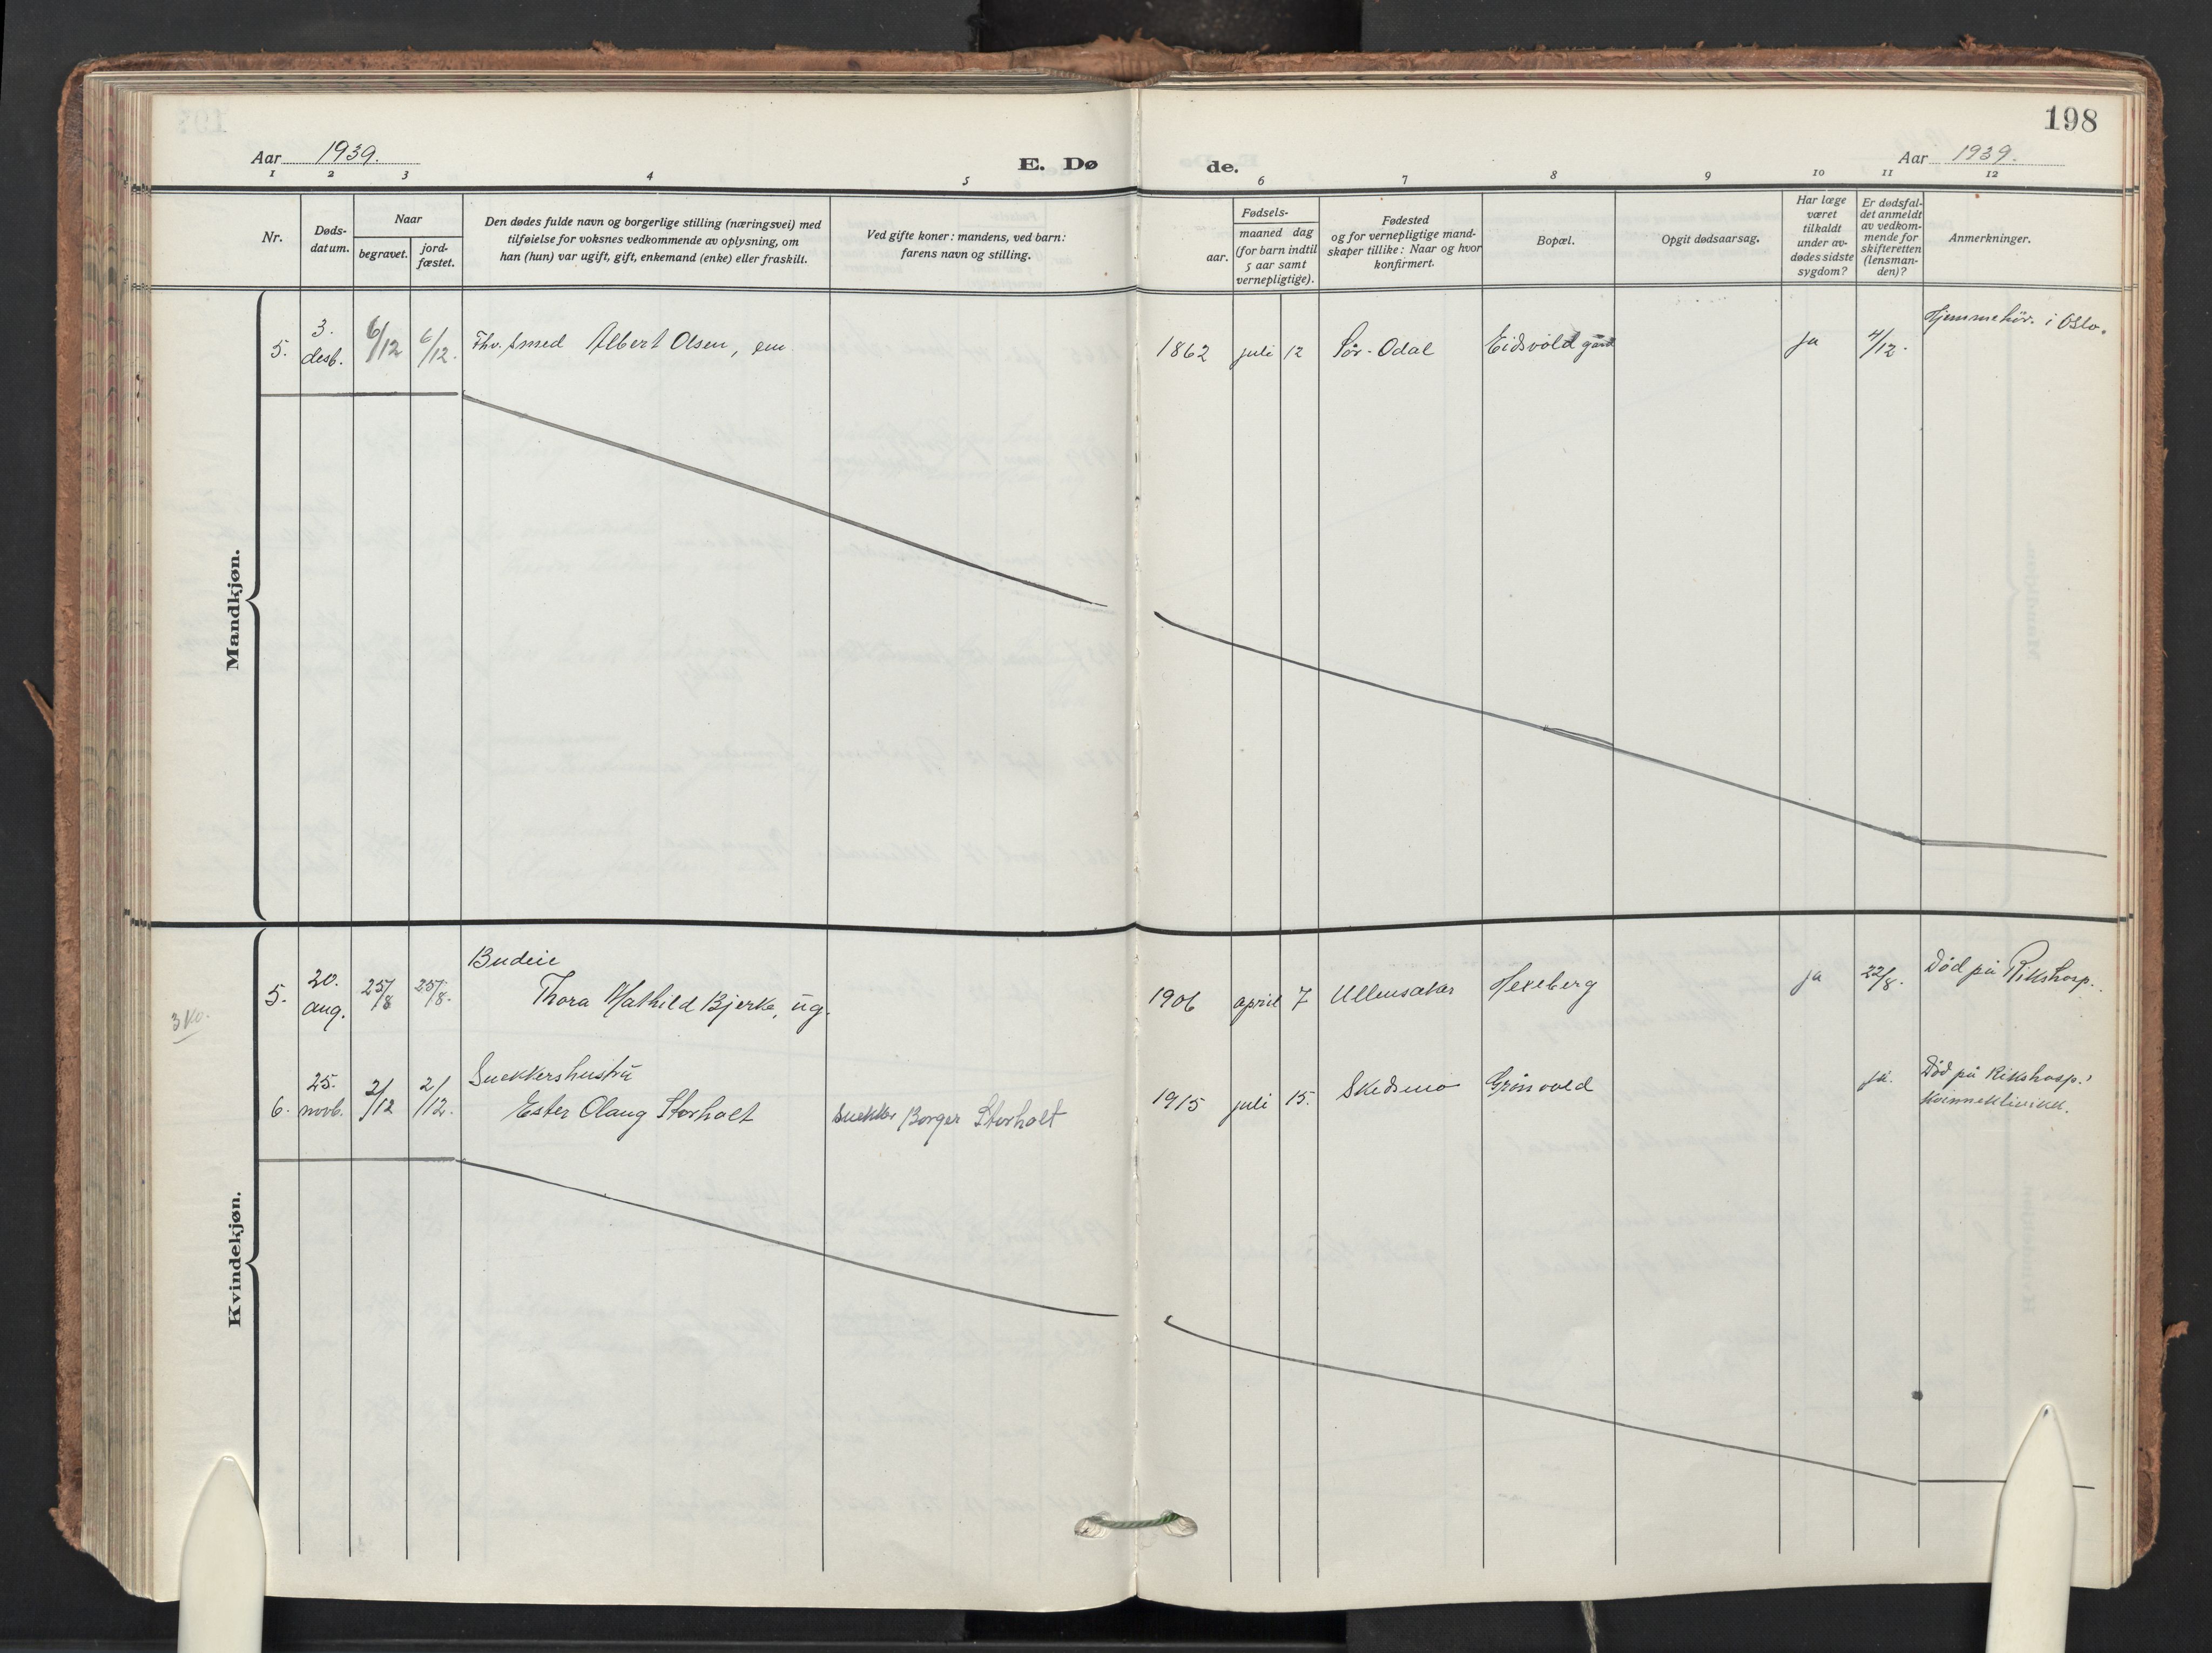 198
Aar 1939.
E. Dø de.
Aar 1939.
1 2 3 4 5 6 7 8 9 10 11 12
Nr.
Døds-
datum.
Naar
begravet.
jord-
fæstet.
Den dødes fulde navn og borgerlige stilling (næringsvei) med
tilføielse for voksnes vedkommende av oplysning, om
han (hun) var ugift, gift, enkemand (enke) eller fraskilt.
Ved gifte koner: mandens, ved barn:
farens navn og stilling.
Fødsels-
aar.
maaned dag
(for barn indtil
5 aar samt
vernepligtige).
Fødested
og for vernepligtige mand-
skaper tillike: Naar og hvor
konfirmert.
Bopæl.
Opgit dødsaarsag.
Har læge
været
tilkaldt
under av-
dødes sidste
sygdom?
Er dødsfal-
det anmeldt
av vedkom-
mende for
skifteretten
(lensman-
den)?
Anmerkninger.
Mandkjøn.
5.
3.
desb.
6/12
6/12.
Fhv. smed Albert Olsen, em
1862 juli 12
Sør-Odal
Eidsvold gård
ja
4/12.
Hjemmehör. i Oslo.
Kvindekjøn.
5.
20.
aug.
25/8
25/8.
Budeie
Thora Mathild Bjerke, ug.
1906 april 7
Ullensaker
Hexeberg
ja
22/8.
Död på Rikshosp.
3 Ko.
6.
25.
novb.
2/12
2/12.
Snekkershustru
Ester Olaug Storholt
snekker Borger Storholt
1915 juli 15.
Skedsmo
Grönvold
ja.
Död på Rikshosp.'
kvinneklinikk.